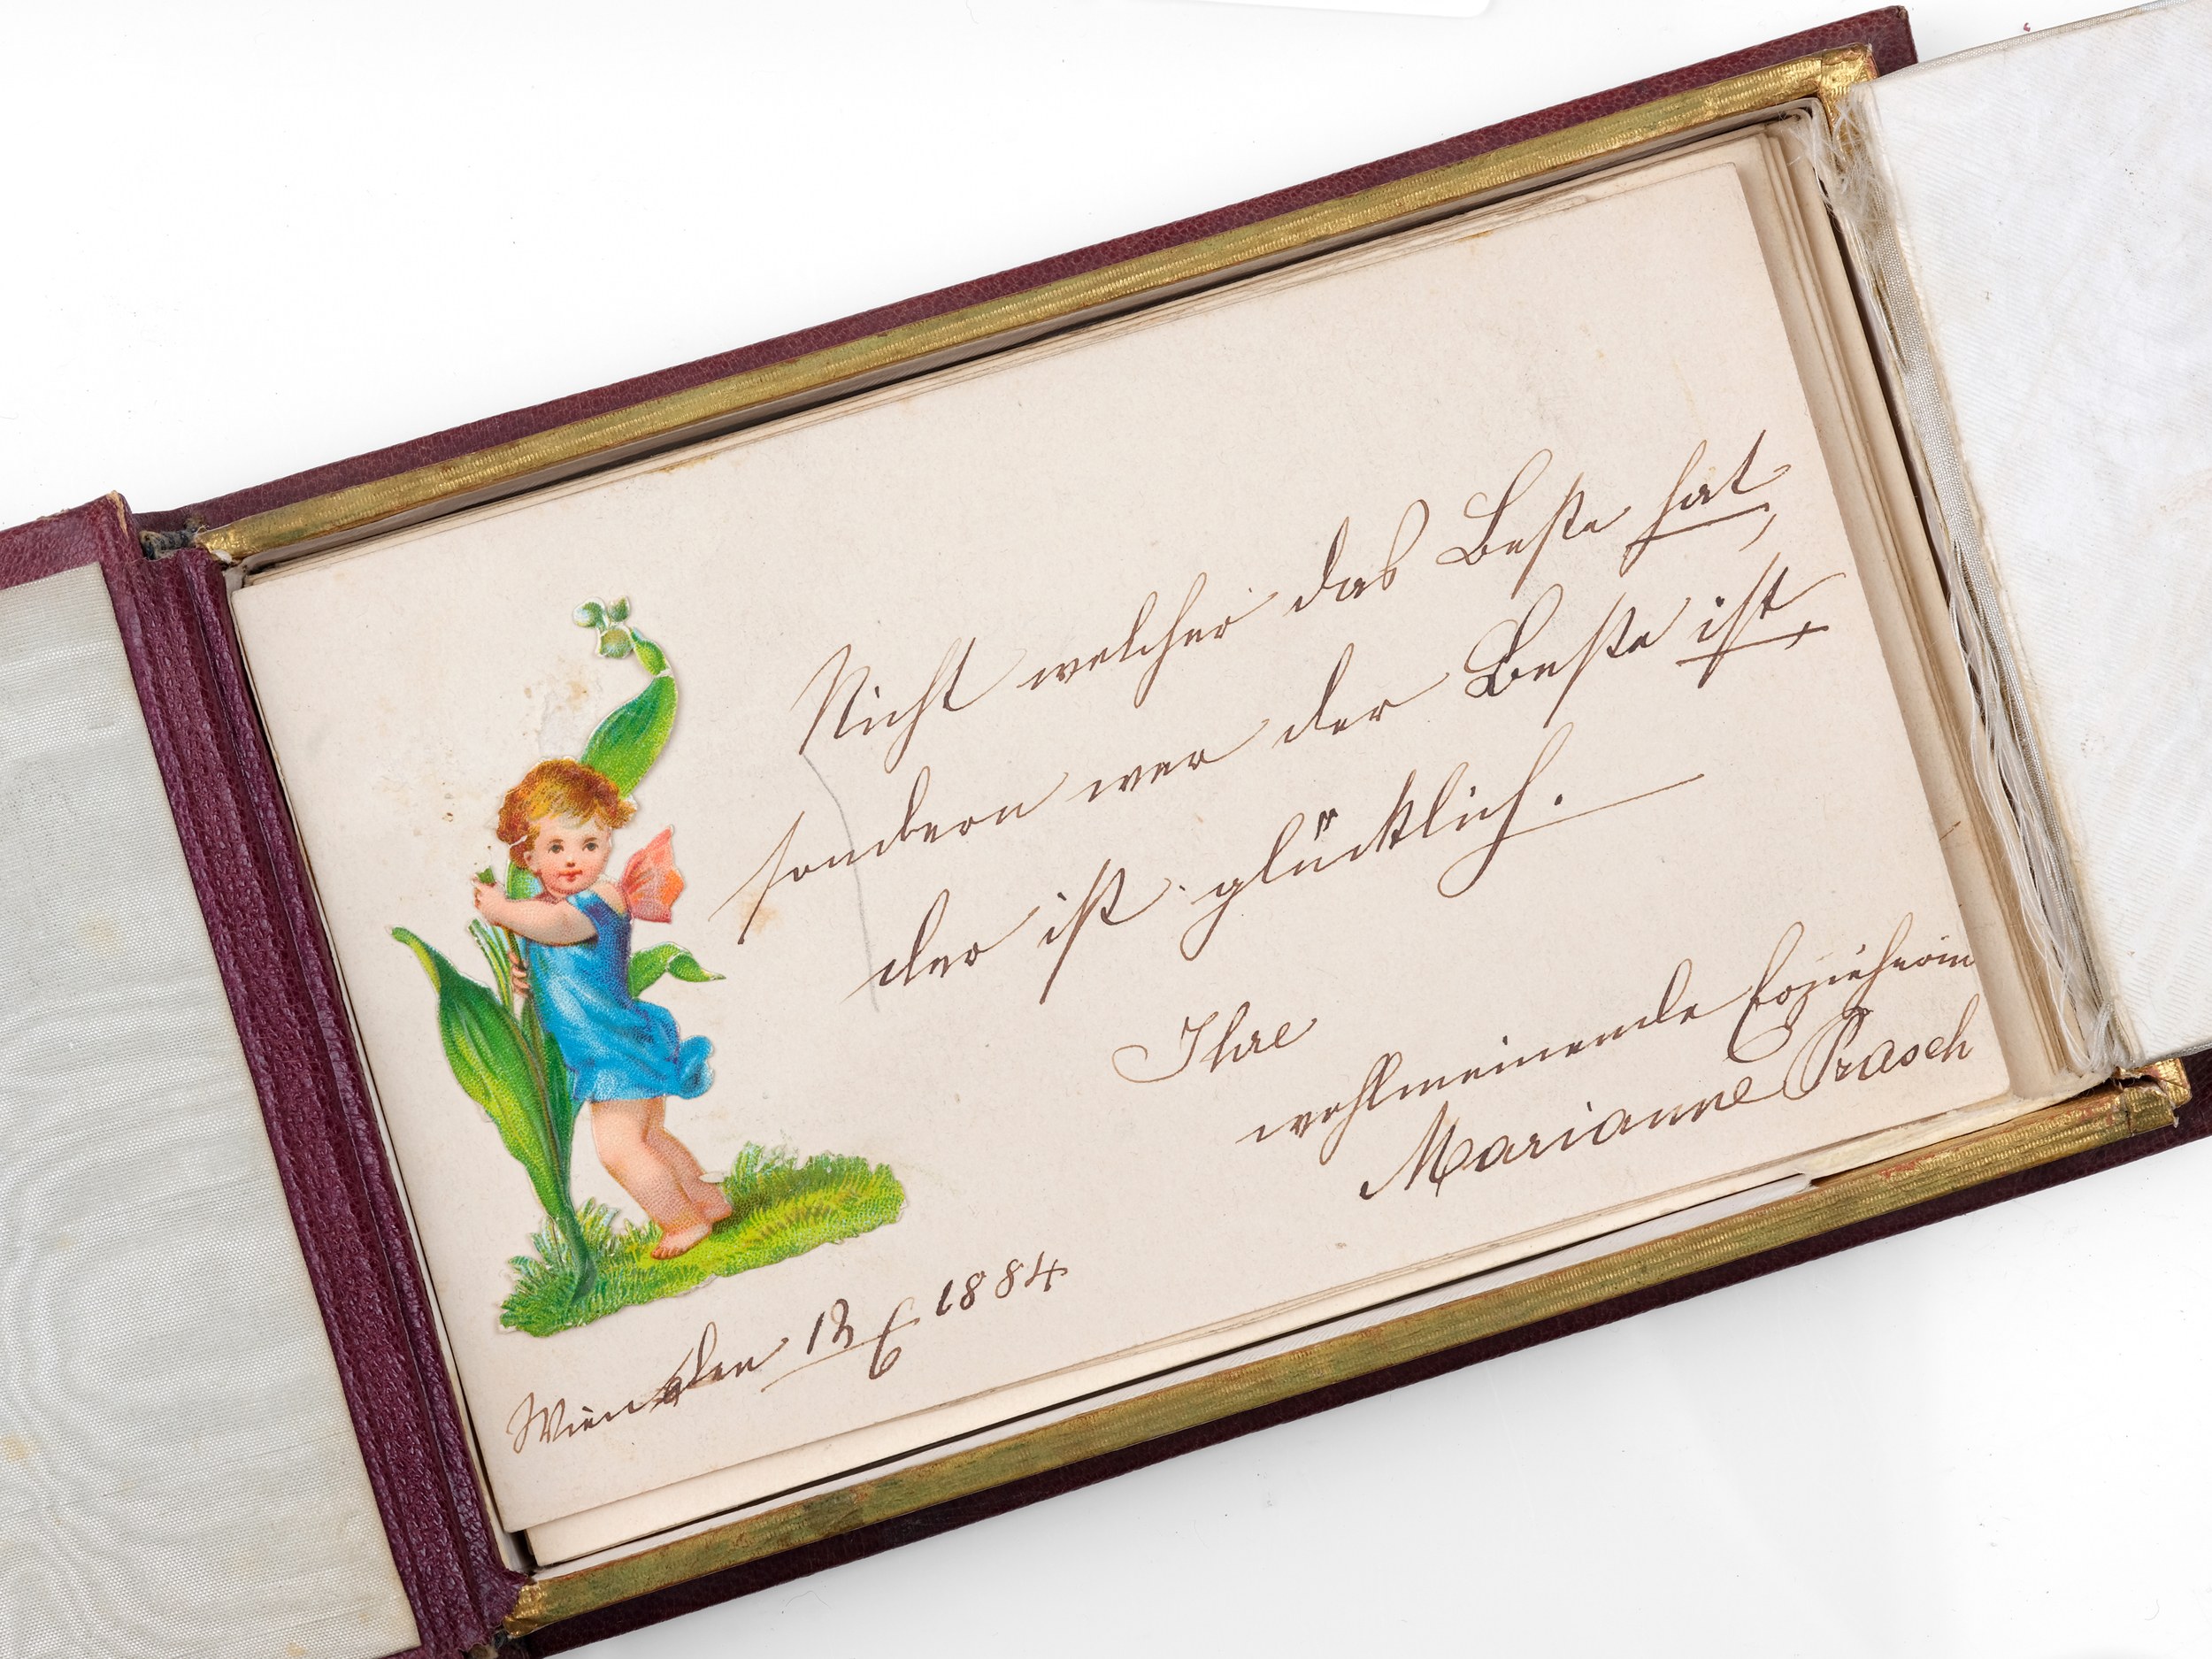 Nicht welcher das Beste hat,
sondern wer der Beste ist,
der ist glücklich.
Ihre
wohlmeinende Erzieherin
Marianne Prasch
Wien den 13/6 1884